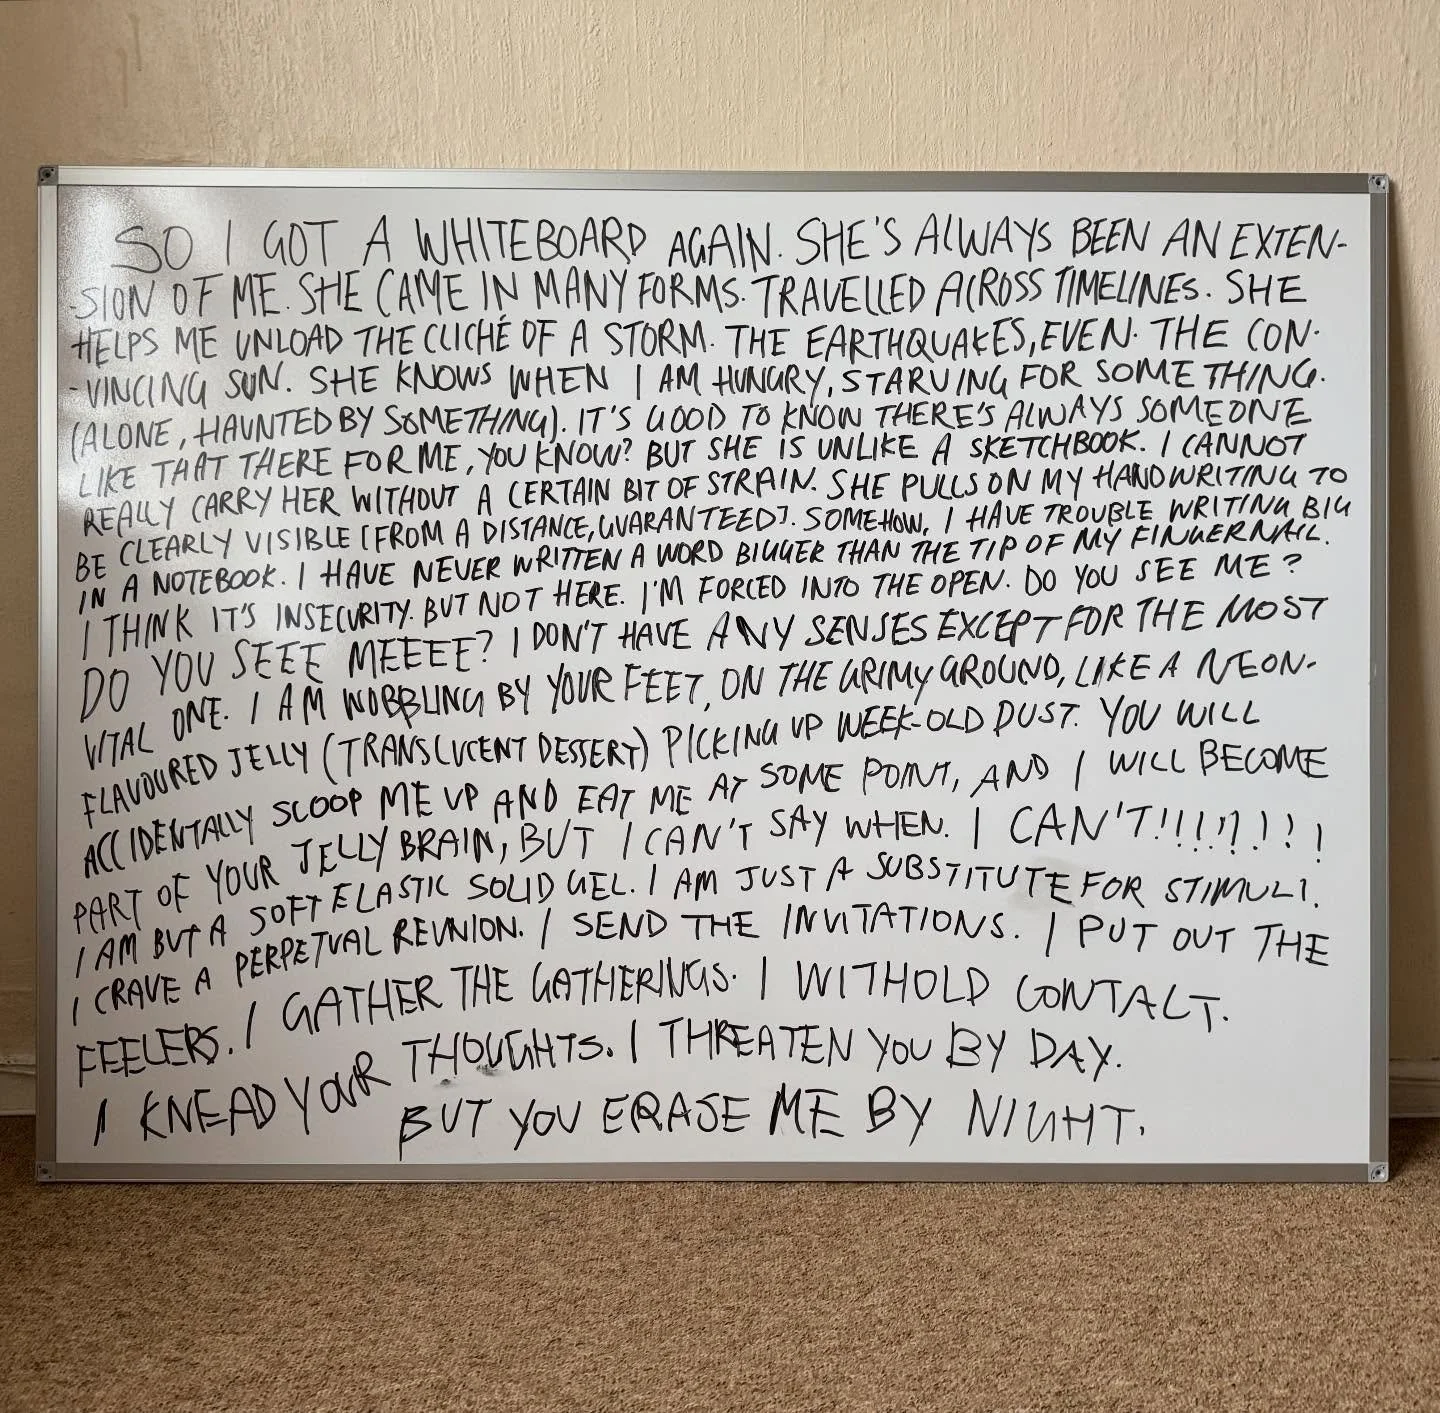 SO I GOT A WHITEBOARD AGAIN. SHE'S ALWAYS BEEN AN EXTEN-
-SION OF ME. SHE CAME IN MANY FORMS. TRAVELLED ACROSS TIMELINES. SHE
HELPS ME UNLOAD THE CLICHÉ OF A STORM. THE EARTHQUAKES, EVEN. THE CON-
-VINCING SUN. SHE KNOWS WHEN I AM HUNGRY, STARVING FOR SOMETHING.
(ALONE, HAUNTED BY SOMETHING). IT'S GOOD TO KNOW THERE'S ALWAYS SOMEONE
LIKE THAT THERE FOR ME, YOU KNOW? BUT SHE IS UNLIKE A SKETCHBOOK. I CANNOT
REALLY CARRY HER WITHOUT A CERTAIN BIT OF STRAIN. SHE PULLS ON MY HANDWRITING TO
BE CLEARLY VISIBLE [FROM A DISTANCE, GUARANTEED]. SOMEHOW, I HAVE TROUBLE WRITING BIG
IN A NOTEBOOK. I HAVE NEVER WRITTEN A WORD BIGGER THAN THE TIP OF MY FINGERNAIL.
I THINK IT'S INSECURITY. BUT NOT HERE. I'M FORCED INTO THE OPEN. DO YOU SEE ME?
DO YOU SEEE MEEEE? I DON'T HAVE ANY SENSES EXCEPT FOR THE MOST
VITAL ONE. I AM WOBBLING BY YOUR FEET, ON THE GRIMY GROUND, LIKE A NEON-
FLAVOURED JELLY (TRANSLUCENT DESSERT) PICKING UP WEEK-OLD DUST. YOU WILL
ACCIDENTALLY SCOOP ME UP AND EAT ME AT SOME POINT, AND I WILL BECOME
PART OF YOUR JELLY BRAIN, BUT I CAN'T SAY WHEN. I CAN'T!!!!?!!!
I AM BUT A SOFT ELASTIC SOLID GEL. I AM JUST A SUBSTITUTE FOR STIMULI.
I CRAVE A PERPETUAL REUNION. I SEND THE INVITATIONS. I PUT OUT THE
FEELERS. I GATHER THE GATHERINGS. I WITHOLD CONTACT.
I KNEAD YOUR THOUGHTS. I THREATEN YOU BY DAY.
BUT YOU ERASE ME BY NIGHT.